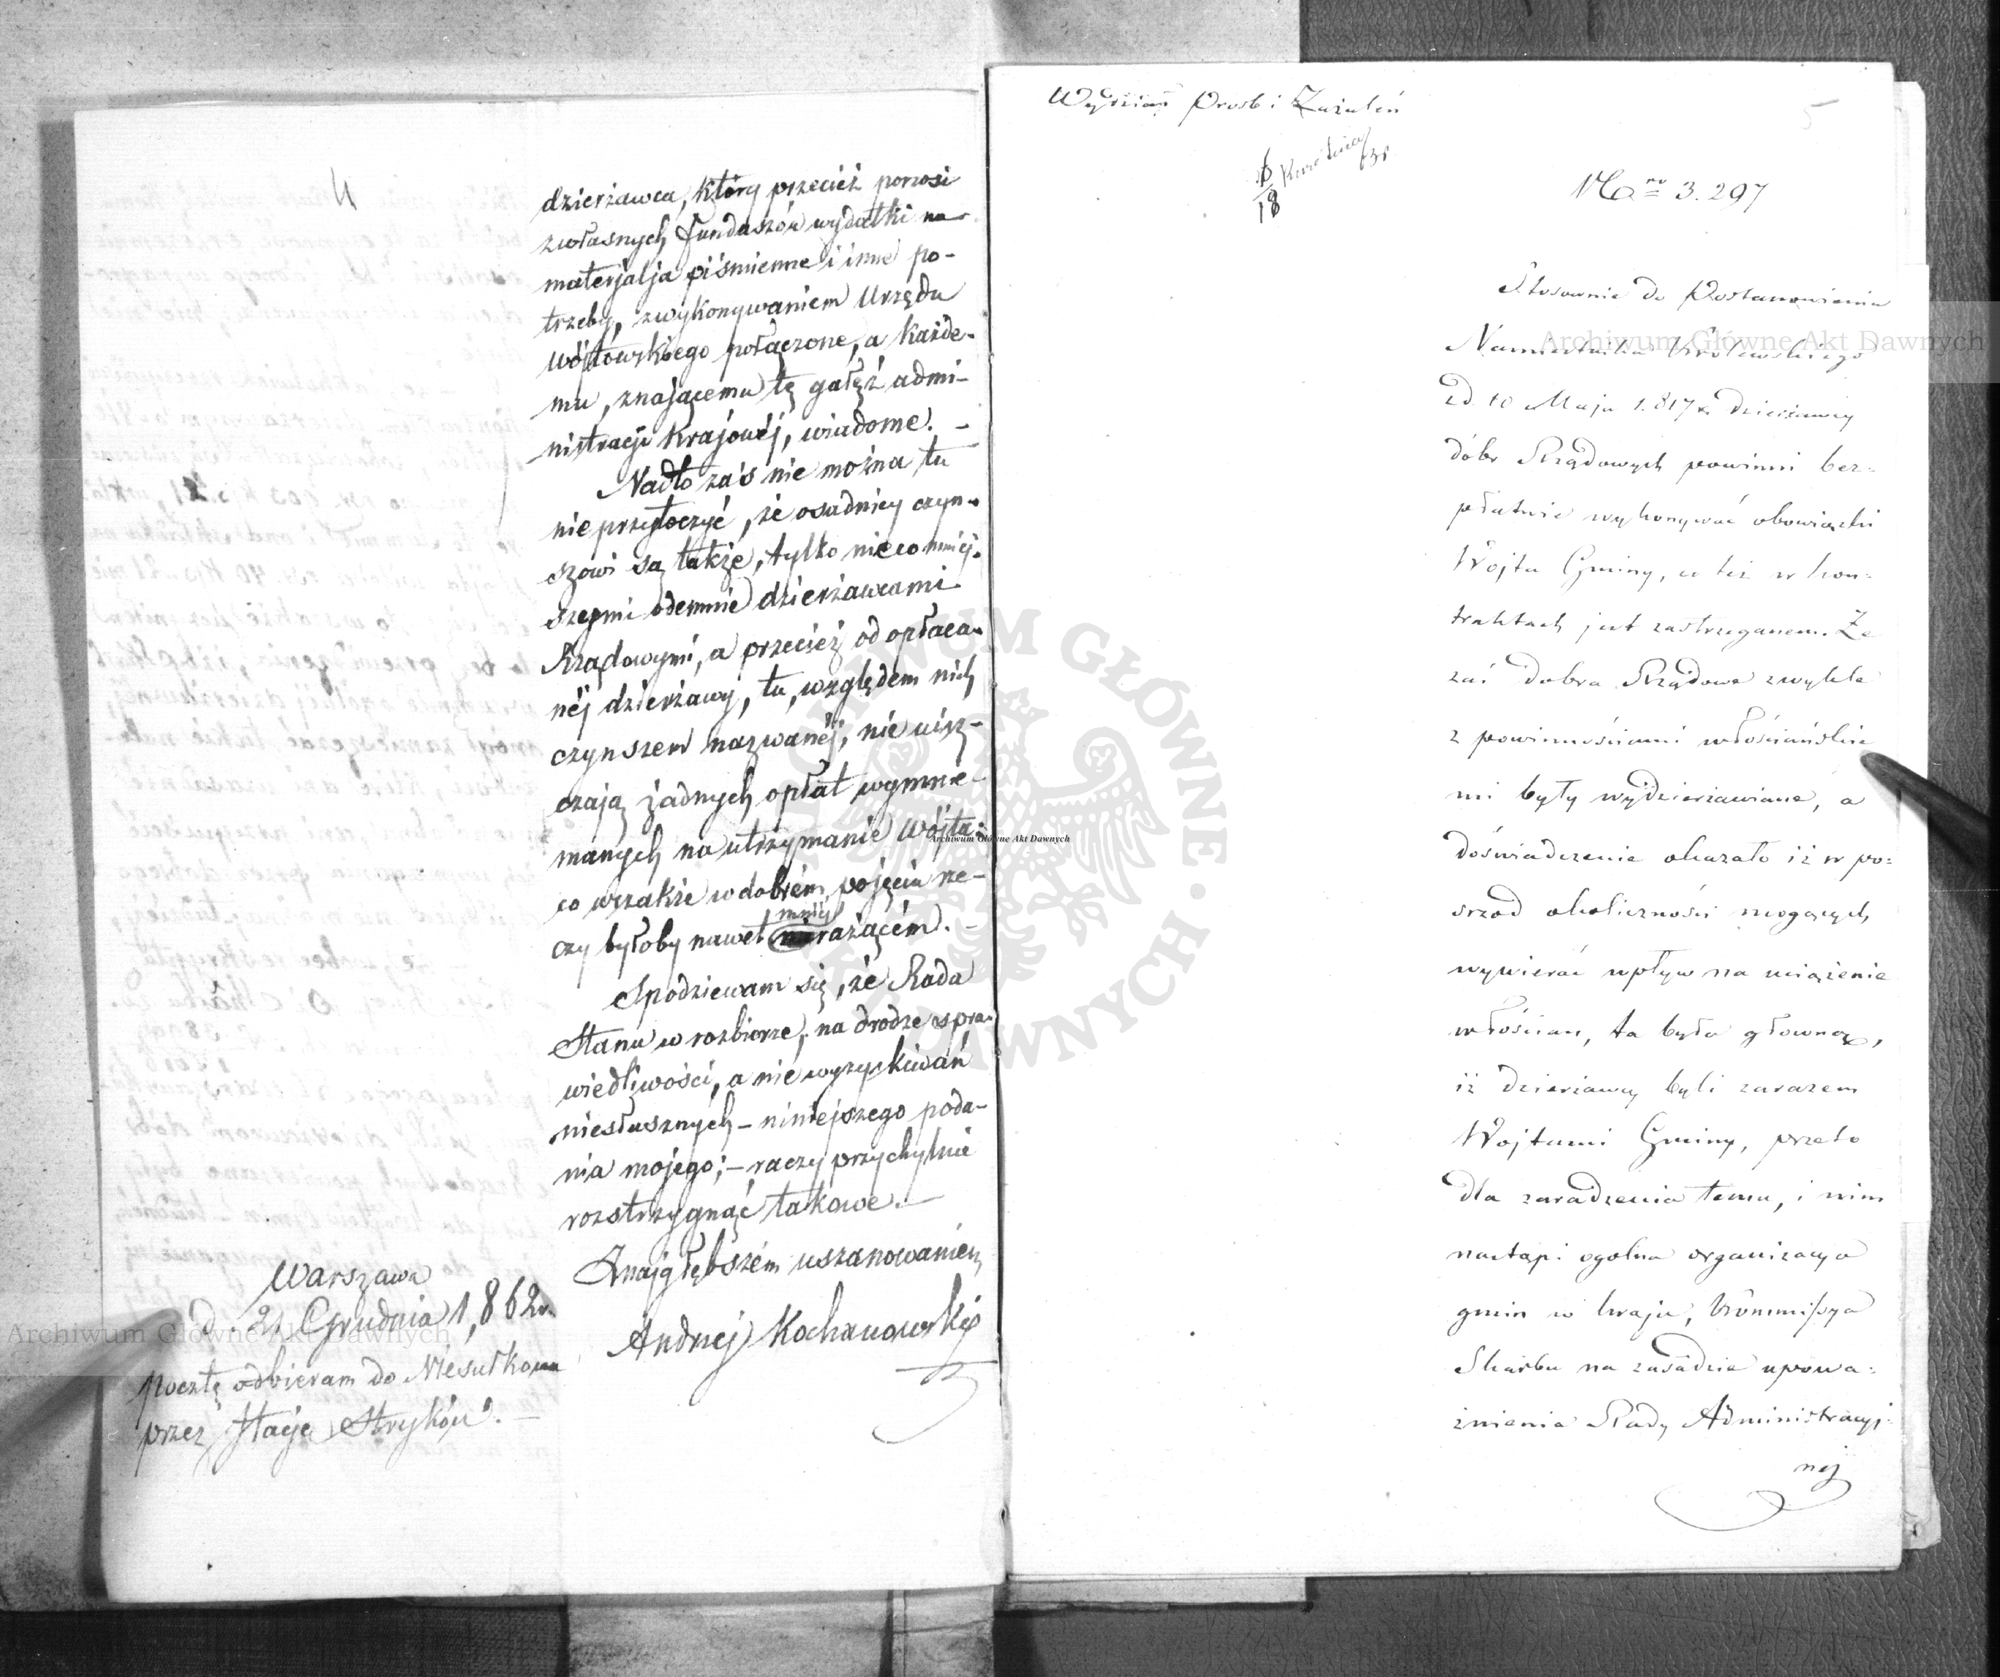 4
dzierżawca, który przecież ponosi
zwłasnych funduszów wydatki na
materjalja piśmienne i inne po-
trzeby, zwykonywaniem Urzędu
Wójtowskiego połączone, a każde-
mu, znającemu tę gałęź admi-
nistracji Krajowéj, wiadome. —
Nadto zaś nie można tu
nieprzytoczyć, że osadnicy czyn-
szowi są także, tylko nieco mniej-
szymi odemnie dzierżawcami
Rządowymi, a przecież od opłaca-
néj dzierżawy, tu, względem nich
czynszem nazwanéj, nie uisz-
czają żadnych opłat wymie-
manych na utrzymanie Wójta;
co wszakże w dobrém pojęciu rze-
czy byłoby nawet mniéj rażącém. —
Spodziewam się, że Rada
Stanu w rozbiorze, na drodze spra-
wiedliwości, a nie wyzyskiwań
niesłusznych — niniejszego poda-
nia mojego; — raczy przychylnie
rozstrzygnąć takowe. —
Znajgłębszém uszanowaniem
Andrzej Kochanowski
Warszawa
d. 21 Grudnia 1,862r.
pocztę odbieram do Niesułkowa
przez Stacje Stryków. —
Wydział Prosb i Zażaleń
6/18
5
Nro 3.297
Stosownie do Postanowienia
Namiestnika Królewskiego
z d 10 Maja 1.817 r. dzierżawcy
dóbr Rządowych powinni bez-
płatnie wykonywać obowiązki
Wójta Gminy, co też w kon-
traktach jest zastrzeganem. Że
zaś dobra Rządowe zwykle
z powinnościami włościańskie
mi były wydzierżawiane, a
doświadczenie okazało iż w po-
srzód okoliczności mogących
wywierać wpływ na uciążenie
włościan, ta była główną,
iż dzierżawcy byli zarazem
Wojtami Gminy, przeto
dla zaradzenia temu, i nim
nastąpi ogólna organizacya
gmin w kraju, Kommissya
Skarbu na zasadzie upowa-
żnienia Rady Administracyj-
nej
Archiwum Główne Akt Dawnych
Archiwum Główne Akt Dawnych
Archiwum Główne Akt Dawnych
ARCHIWUM GŁÓWNE AKT DAWNYCH